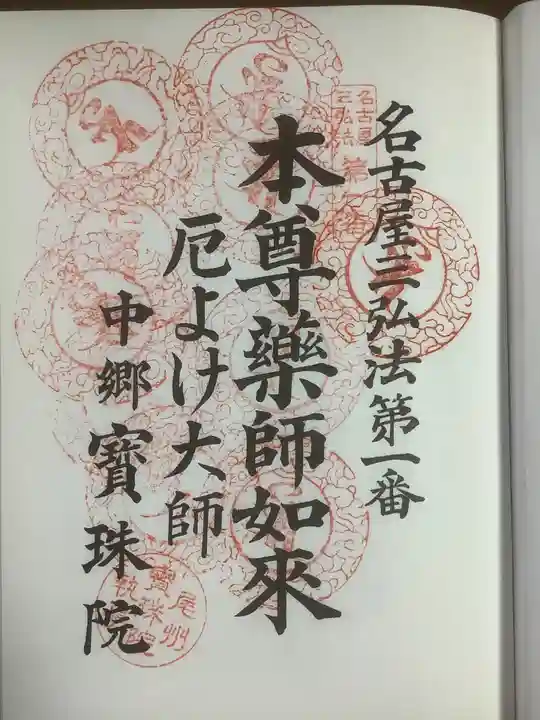 名古屋三弘法第一番
本尊藥師如來
厄よけ大師
中郷 寶珠院
名古屋
三弘法
第一番
尾州
寶珠院